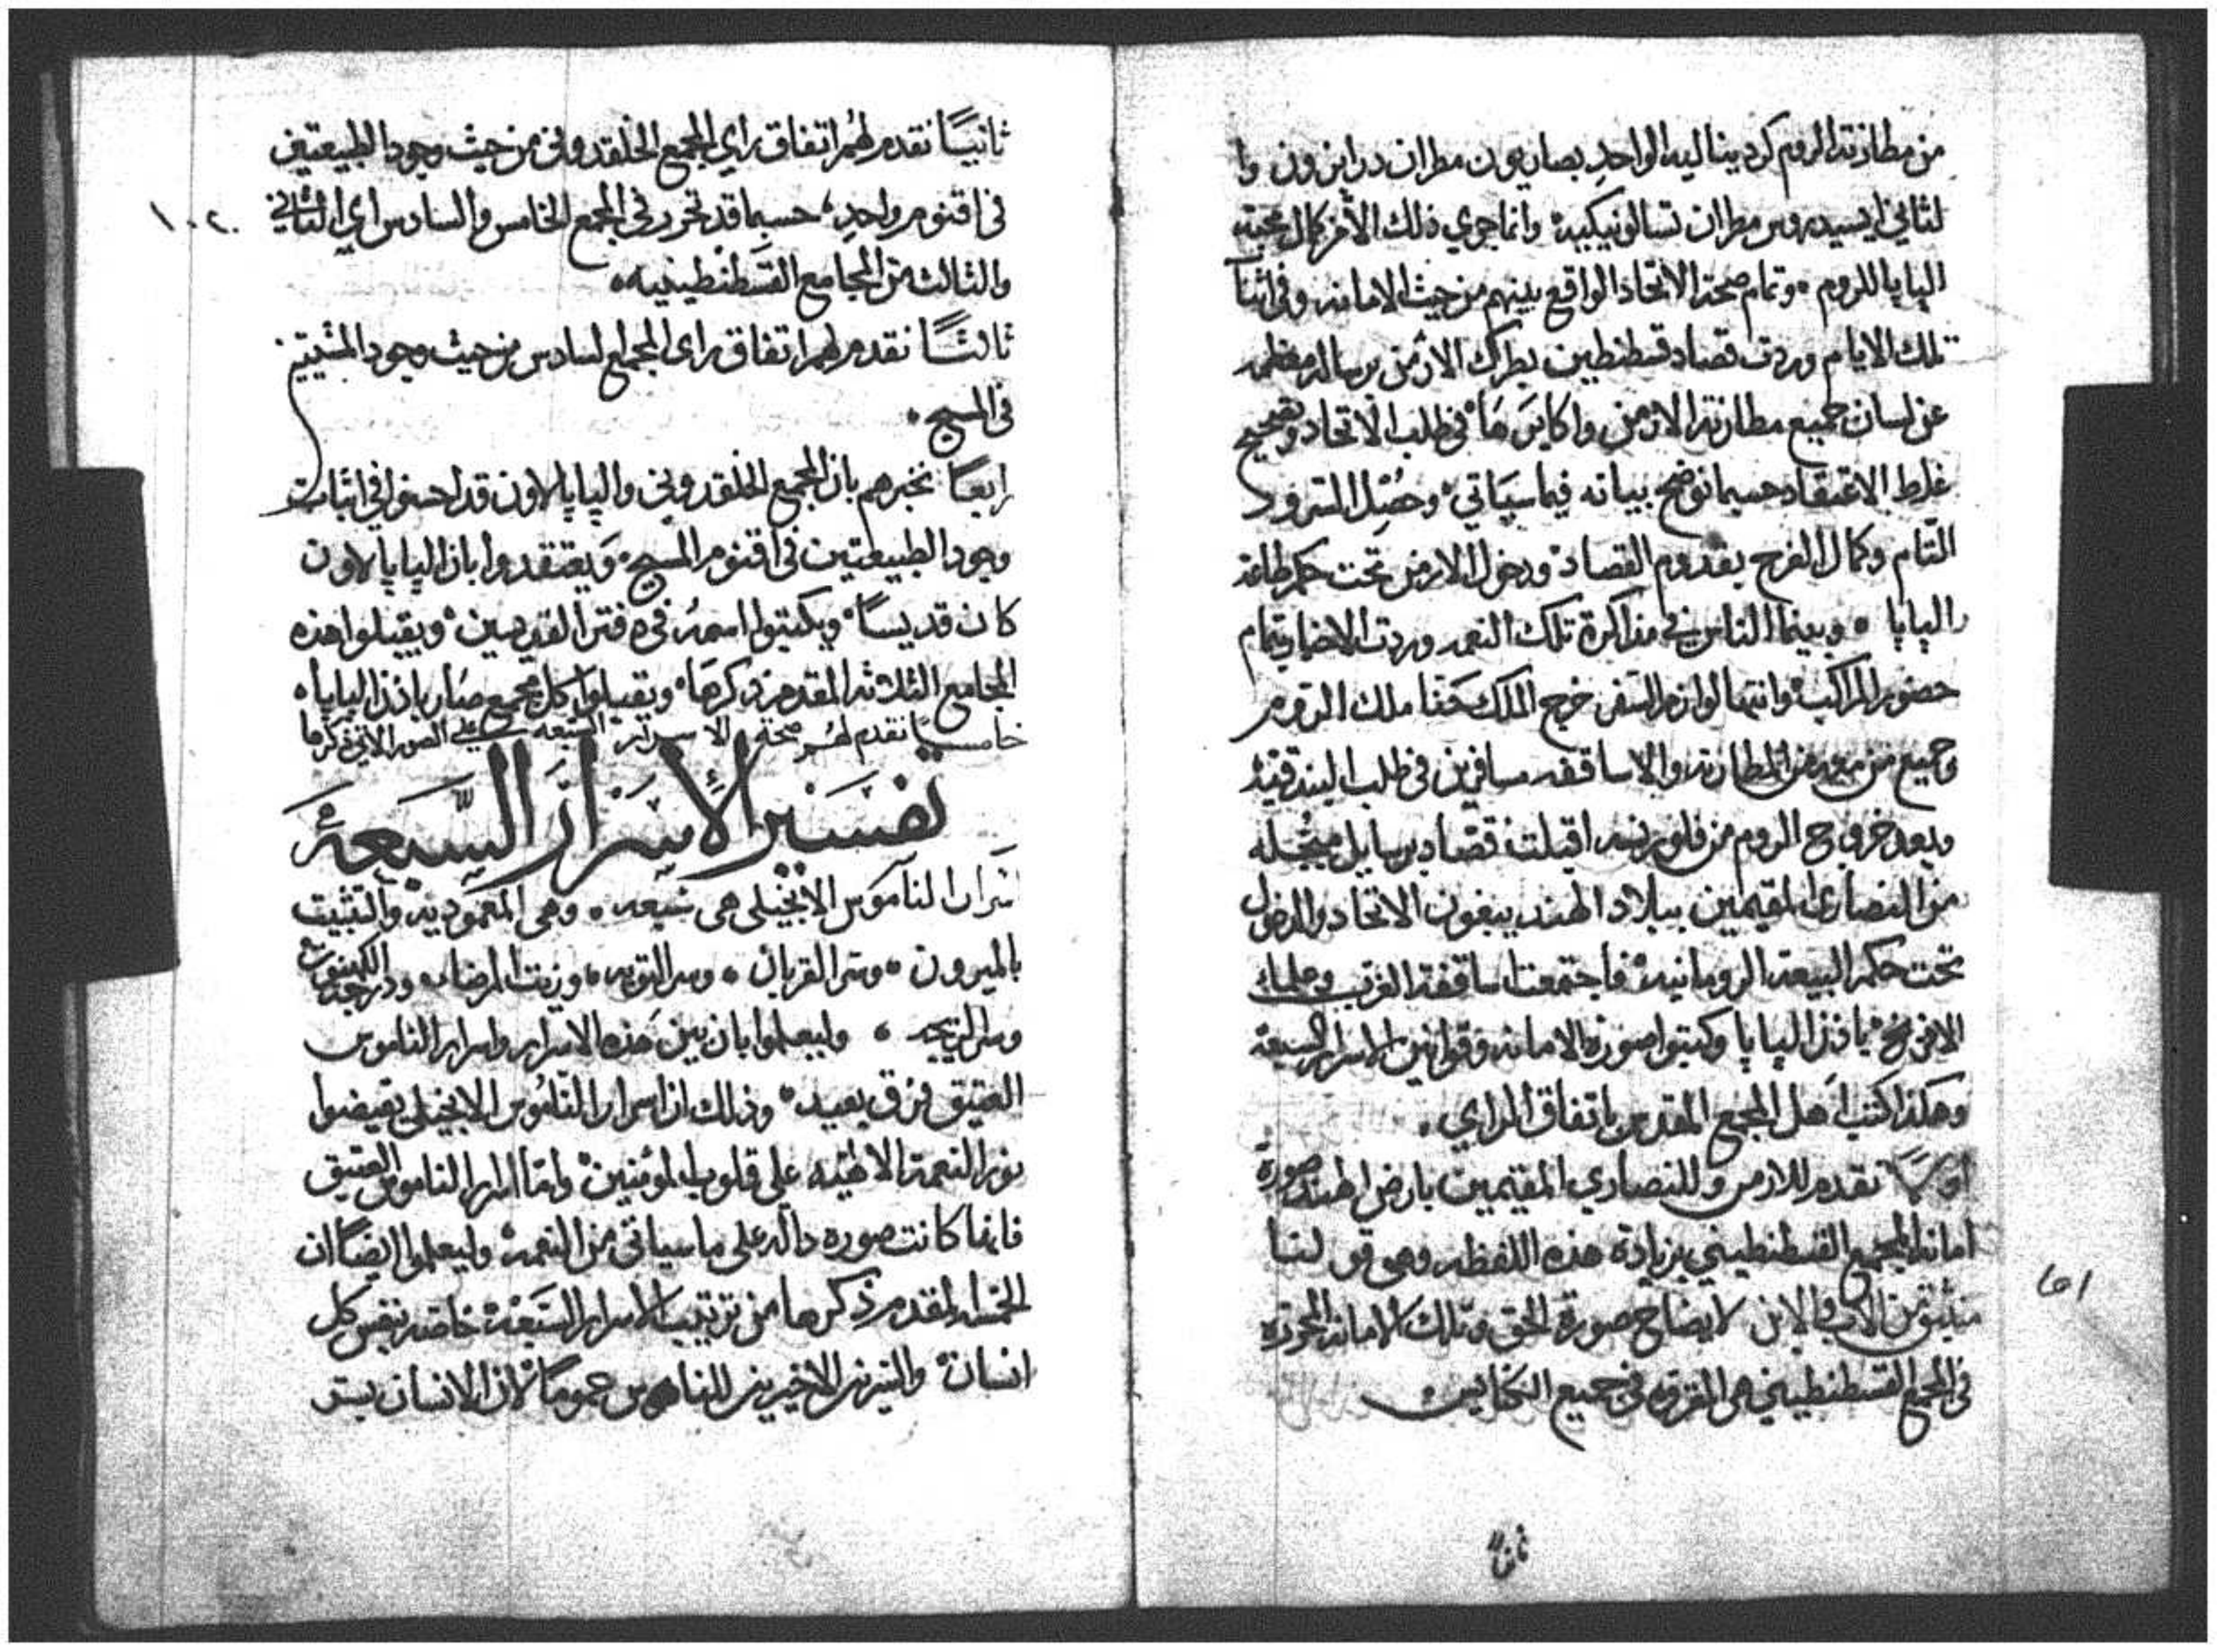 من مطارنة الروم كرديناليه الواحد بصاريون مطران دراين ون وا
لثاني ايسيدوروس مطران تسالونيكييه وانما جري ذلك الأمر لكمال محبة
البابا للروم وتمام صحة الاتحاد الواقع بينهم من حيث الامانه وفي اثنآ
تلك الايام وردت قصاد قسطنطين بطرك الارمن برساله معظمه
عن لسان جميع مطارنة الارمن واكابرها في طلب الاتحاد وتصحيح
غلط الاعتقاد حسبما نوضح بيانه فيما سيأتي وحصل السرور
التام وكمال الفرح بقدوم القصاد ودخول الارمن تحت حكم طاعة
البابا وبينما الناس في مذاكرة تلك النعمه وردت الاخبار بتمام
حضور المراكب وانتها لوازم السفر خرج الملك حنا ملك الروم
وجميع من معه من المطارنه والاساقفه مسافرين في طلب البندقيه
وبعد خروج الروم من فلورنسه اقبلت قصاد برسايل مبجله
من النصارى المقيمين ببلاد الهند يبغون الاتحاد والدخول
تحت حكم البيعة الرومانيه فاجتمعت اساقفة الغرب وعلمآ
الافرنج باذن البابا وكتبوا صورة الامانه وقوانين الاسرار السبعة
وهكذا كتب اهل المجمع المقدس باتفاق الراي
اولاً نقدم للارمن وللنصاري المقيمين بارض الهند صورة
امانة المجمع القسطنطيني بزيادة هذه اللفظه وهي قولنا
منبثق من الاب والابن لايضاح صورة الحق وتلك الامانه المحرره
في المجمع القسطنطيني هي المقروه في جميع الكنايس
ثانياً
١٥١
١٠٢
ثانياً نقدم لهم اتفاق راي المجمع الخلقدوني من حيث وجود الطبيعتين
في اقنوم واحد حسبما قد تحرر في المجمع الخامس والسادس اي الثاني
والثالث من المجامع القسطنطينيه
ثالثاً نقدم لهم اتفاق راى المجمع السادس من حيث وجود المشيتين
في المسيح
رابعاً نخبرهم بان المجمع الخلقدوني والبابا لاون قد احسنوا في اثبات
وجود الطبيعتين في اقنوم المسيح ويعتقدوا بان البابا لاون
كان قديساً ويكتبوا اسمه في دفتر القديسين ويقبلوا هذه
المجامع الثلاثه المقدم ذكرها ويقبلوا كل مجمع صار باذن البابا
خامساً نقدم لهم صحة الاسرار السبعه على الصور الاتي ذكرها
تفسير الاسرار السبعة
اسرار الناموس الانجيلي هي سبعه وهي المعموديه والتثبيت
بالميرون وسر القربان وسر التوبه وزيت المرضا ودرجة الكهنوت
وسر الزيجه وليعلموا بان بين هذه الاسرار واسرار الناموس
العتيق فرق بعيد وذلك ان اسرار الناموس الانجيلي تفيضوا
نور النعمة الالهيه على قلوب المؤمنين واما اسرار الناموس العتيق
فانها كانت صوره داله على ما سياتي من النعمه وليعلموا ايضاً ان
الخمسه المقدم ذكرها من ترتيب الاسرار السبعه خاصه بنفس كل
انسان والسرين الاخيرين للناموس عموماً لان الانسان بسر